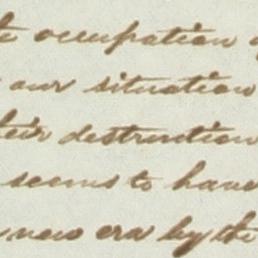 occupation
our situation
their destruction
seems to have
new era by the